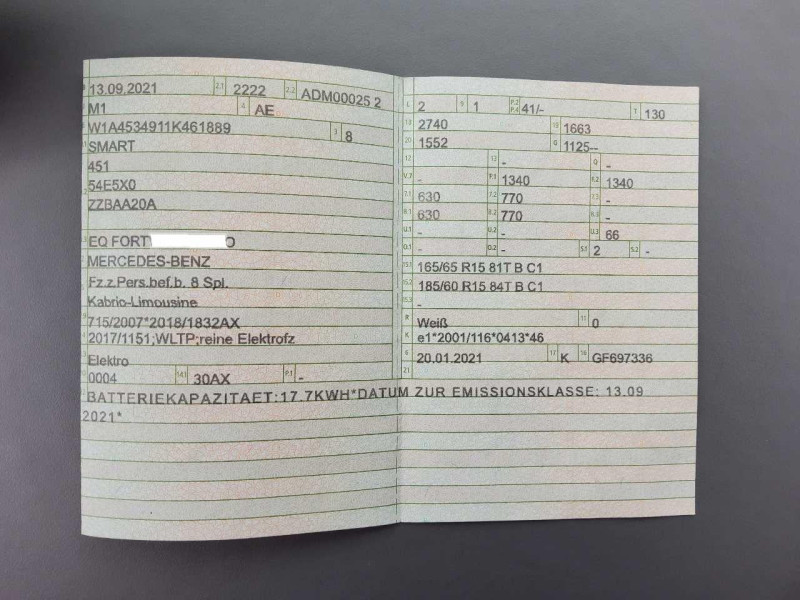 13.09.2021 2.1 2222 2.2 ADM00025 2
M1 4 AE
W1A4534911K461889 3 8
SMART
451
54E5X0
ZZBAA20A
EQ FORT O
MERCEDES-BENZ
Fz.z.Pers.bef.b. 8 Spl.
Kabrio-Limousine
715/2007*2018/1832AX
2017/1151;WLTP;reine Elektrofz
Elektro
0004 14.1 30AX P.1 -
BATTERIEKAPAZITAET:17.7KWH*DATUM ZUR EMISSIONSKLASSE: 13.09
2021*
L 2 9 1 P.2 P.4 41/- T 130
18 2740 19 1663
20 1552 G 1125--
12 - 13 - Q -
V.7 - F.1 1340 F.2 1340
7.1 630 7.2 770 7.3 -
8.1 630 8.2 770 8.3 -
U.1 - U.2 - U.3 66
O.1 - O.2 - S.1 2 S.2 -
15.1 165/65 R15 81T B C1
15.2 185/60 R15 84T B C1
15.3 -
R Weiß 11 0
K e1*2001/116*0413*46
6 20.01.2021 17 K 16 GF697336
21